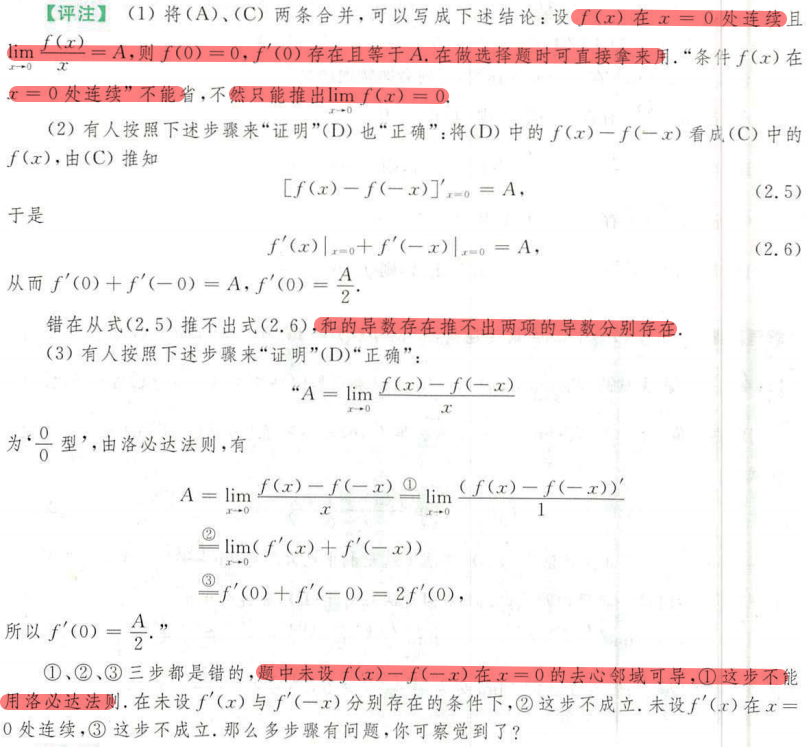 【评注】 (1) 将(A)、(C) 两条合并,可以写成下述结论:设 f(x) 在 x = 0 处连续且
lim_{x→0} f(x)/x = A,则 f(0) = 0, f′(0) 存在且等于 A. 在做选择题时可直接拿来用.“条件 f(x) 在
x = 0 处连续”不能省,不然只能推出 lim_{x→0} f(x) = 0.
(2) 有人按照下述步骤来“证明”(D) 也“正确”:将(D) 中的 f(x) − f(−x) 看成(C) 中的
f(x),由(C) 推知
[f(x) − f(−x)]′_{x=0} = A, (2.5)
于是
f′(x)|_{x=0} + f′(−x)|_{x=0} = A, (2.6)
从而 f′(0) + f′(−0) = A, f′(0) = A/2.
错在从式(2.5) 推不出式(2.6),和的导数存在推不出两项的导数分别存在.
(3) 有人按照下述步骤来“证明”(D)“正确”:
“A = lim_{x→0} (f(x) − f(−x))/x
为‘0/0 型’,由洛必达法则,有
A = lim_{x→0} (f(x) − f(−x))/x ①= lim_{x→0} (f(x) − f(−x))′/1
②= lim_{x→0} (f′(x) + f′(−x))
③= f′(0) + f′(−0) = 2f′(0),
所以 f′(0) = A/2.”
①、②、③ 三步都是错的,题中未设 f(x) − f(−x) 在 x = 0 的去心邻域可导,① 这步不能
用洛必达法则. 在未设 f′(x) 与 f′(−x) 分别存在的条件下,② 这步不成立. 未设 f′(x) 在 x =
0 处连续,③ 这步不成立. 那么多步骤有问题,你可察觉到了?